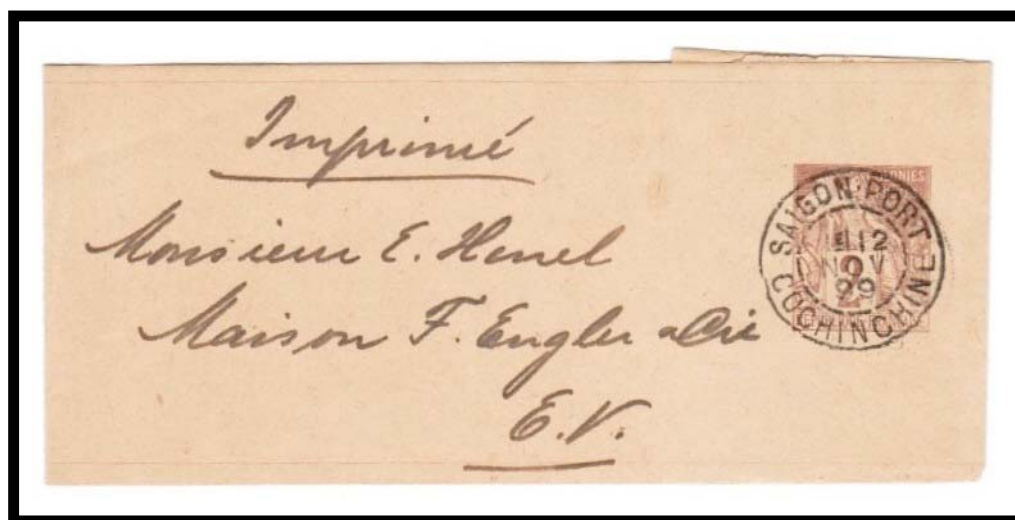 Imprimé
Monsieur E. Hanel
Maison F. Engler & Cie
E.V.
SAIGON-PORT
12
NOV
99
COCHINCHINE
2